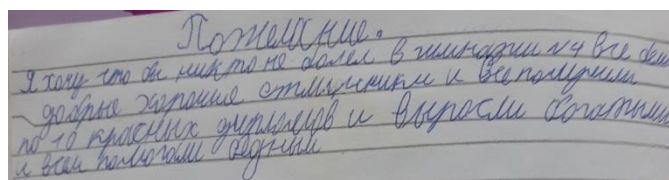 Пожелание.
Я хочу что бы никто не болел в гимназии № 4 все были
добрые хорошие отличники и все получили
по 10 красных дипломов и выросли богатыми
и всем помогали бедным